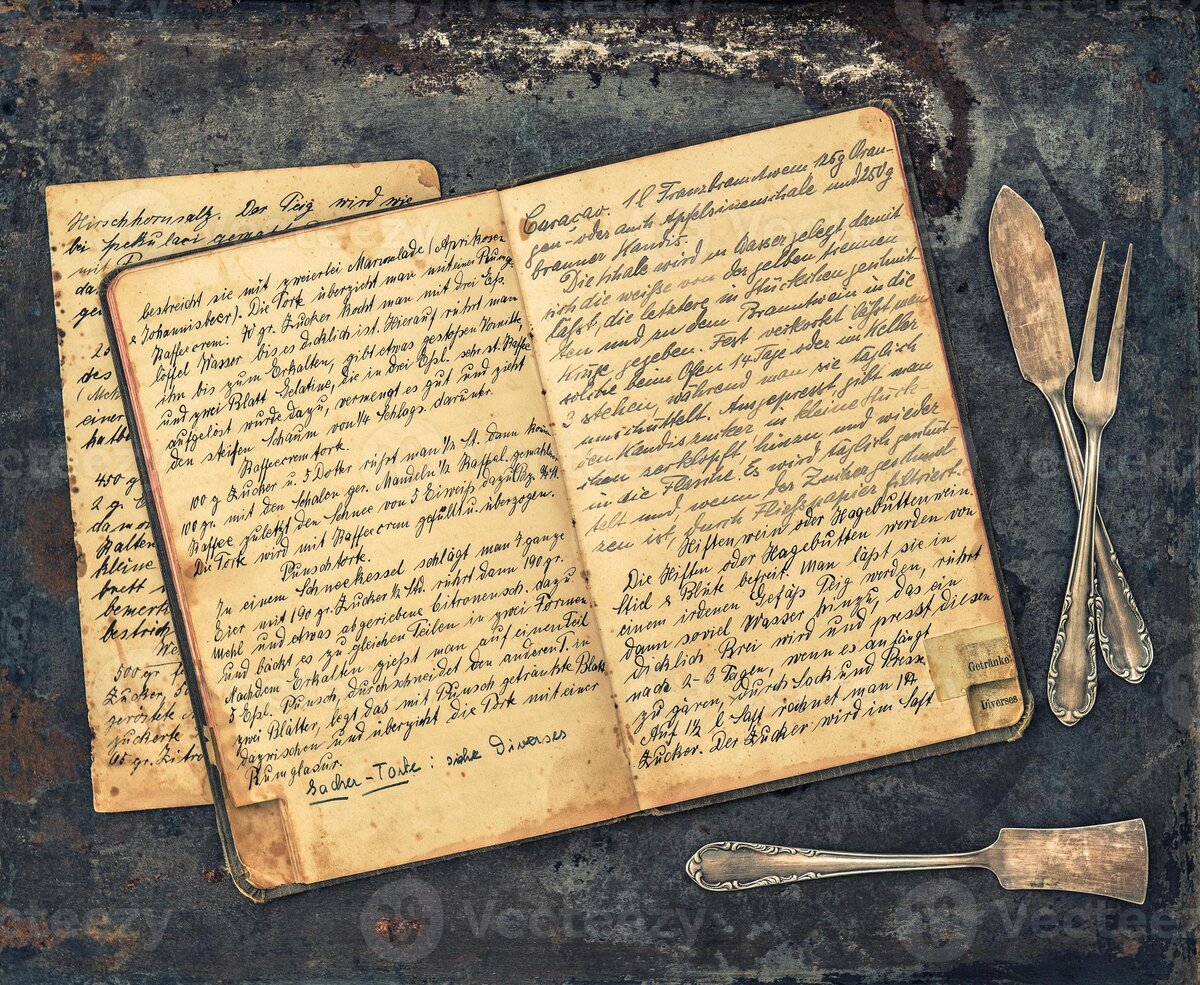 Hirschhornsalz. Der Teig wird wie
bei Spekulaci
wit
da
ge
25
des
(Meh
einer
halbe
450 g
2 g.
da
kalten
kleine
brett
bemerk
bestrich
We
500 gr.
Zucker, 50
geröstete
zuckerte
65 gr. Zitro
bestreicht sie mit zweierlei Marmelade (Aprikosen
& Johannisbeer). Die Tork überzieht man mit einer Rumgl.
Kaffeecrem: 70 gr. Zucker kocht man mit drei Eßl.
löffel Wasser bis es dicklich ist. Hierauf rührt man
ihn bis zum Erkalten, gibt etwas gestoßen Vanille
und zwei Blatt Gelatine, die in drei Eßl. sehr st. Kaffee
aufgelöst wurde dazu, vermengt es gut und zieht
den steifen Schaum von 1/4 Schlags. darunter.
Kaffeecremtork.
100 g Zucker u. 5 Dotter rührt man 1/2 St. dann
100 gr. mit den Schalen ger. Mandeln 1/2 Kaffel. gemahlen
Kaffee zuletzt den Schnee von 5 Eiweiß dazu
Die Tork wird mit Kaffeecrem gefüllt u. überzogen.
Punschtork.
In einem Schneekessel schlägt man 4 ganze
Eier mit 190 gr. Zucker 1/2 Std. rührt dann 190 gr.
Mehl und etwas abgeriebene Citronensch. dazu
und bäckt es zu gleichen Teilen in zwei Formen
Nachdem Erkalten gießt man auf einen Teil
5 Eßl. Punsch, durchschneidet den anderen T. in
zwei Blätter, legt das mit Punsch getränkte Blatt
dazwischen und überzieht die Tork mit einer
Rumglasur.
Sacher-Torte: siehe Diverses
Curaçao. 1 l Franzbranntwein 125 g Oran-
gen- oder auch Apfelsinenschale und 250 g
brauner Kandis.
Die Schale wird in Wasser gelegt damit
sich die weiße von der gelben trennen
läßt, die letztere in Stückchen geschnit-
ten und zu dem Branntwein in die
Kruke gegeben. Fest verkorkt läßt man
solche beim Ofen 14 Tage oder im Keller
3 stehen, während man sie täglich
umschüttelt. Ausgepresst, gibt man
den Kandiszucker in kleine Stück-
chen zerklopft, hinzu, und wieder
in die Flasche. Es wird täglich geschüt-
telt und wenn der Zucker geschmol
zen ist, durch Fließpapier filtriert.
Hiftenwein oder Hagebuttenwein.
Die Hiften oder Hagebutten werden von
Stiel & Blüte befreit. Man läßt sie in
einem irdenen Gefäß teig werden, rührt
dann soviel Wasser hinzu, das ein
dicklich Brei wird und presst diesen
nach 2-3 Tagen, wenn es anfängt
zu gären, durch Sack und Presse
Auf 1 1/2 l Saft rechnet man 1 ℔
Zucker. Der Zucker wird im Saft
Getränke
Diverses
Vecteezy
Vecteezy